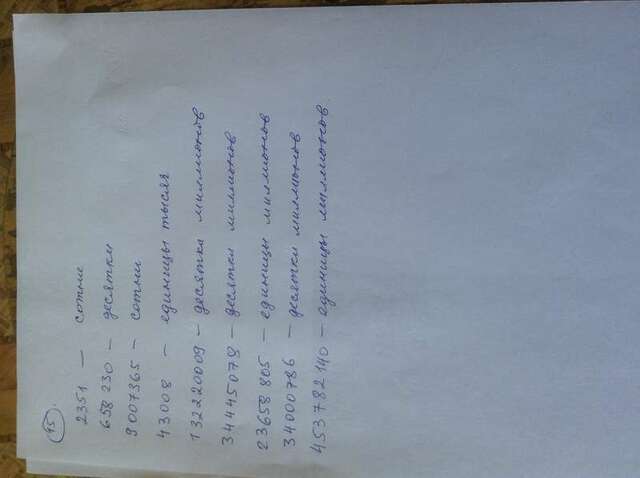 15.
2351 — сотни
658 230 — десятки
9007365 — сотни
43008 — единицы тысяч
132220009 — десятки миллионов
34445078 — десятки миллионов
23658805 — единицы миллионов
34000786 — десятки миллионов
453782140 — единицы миллионов